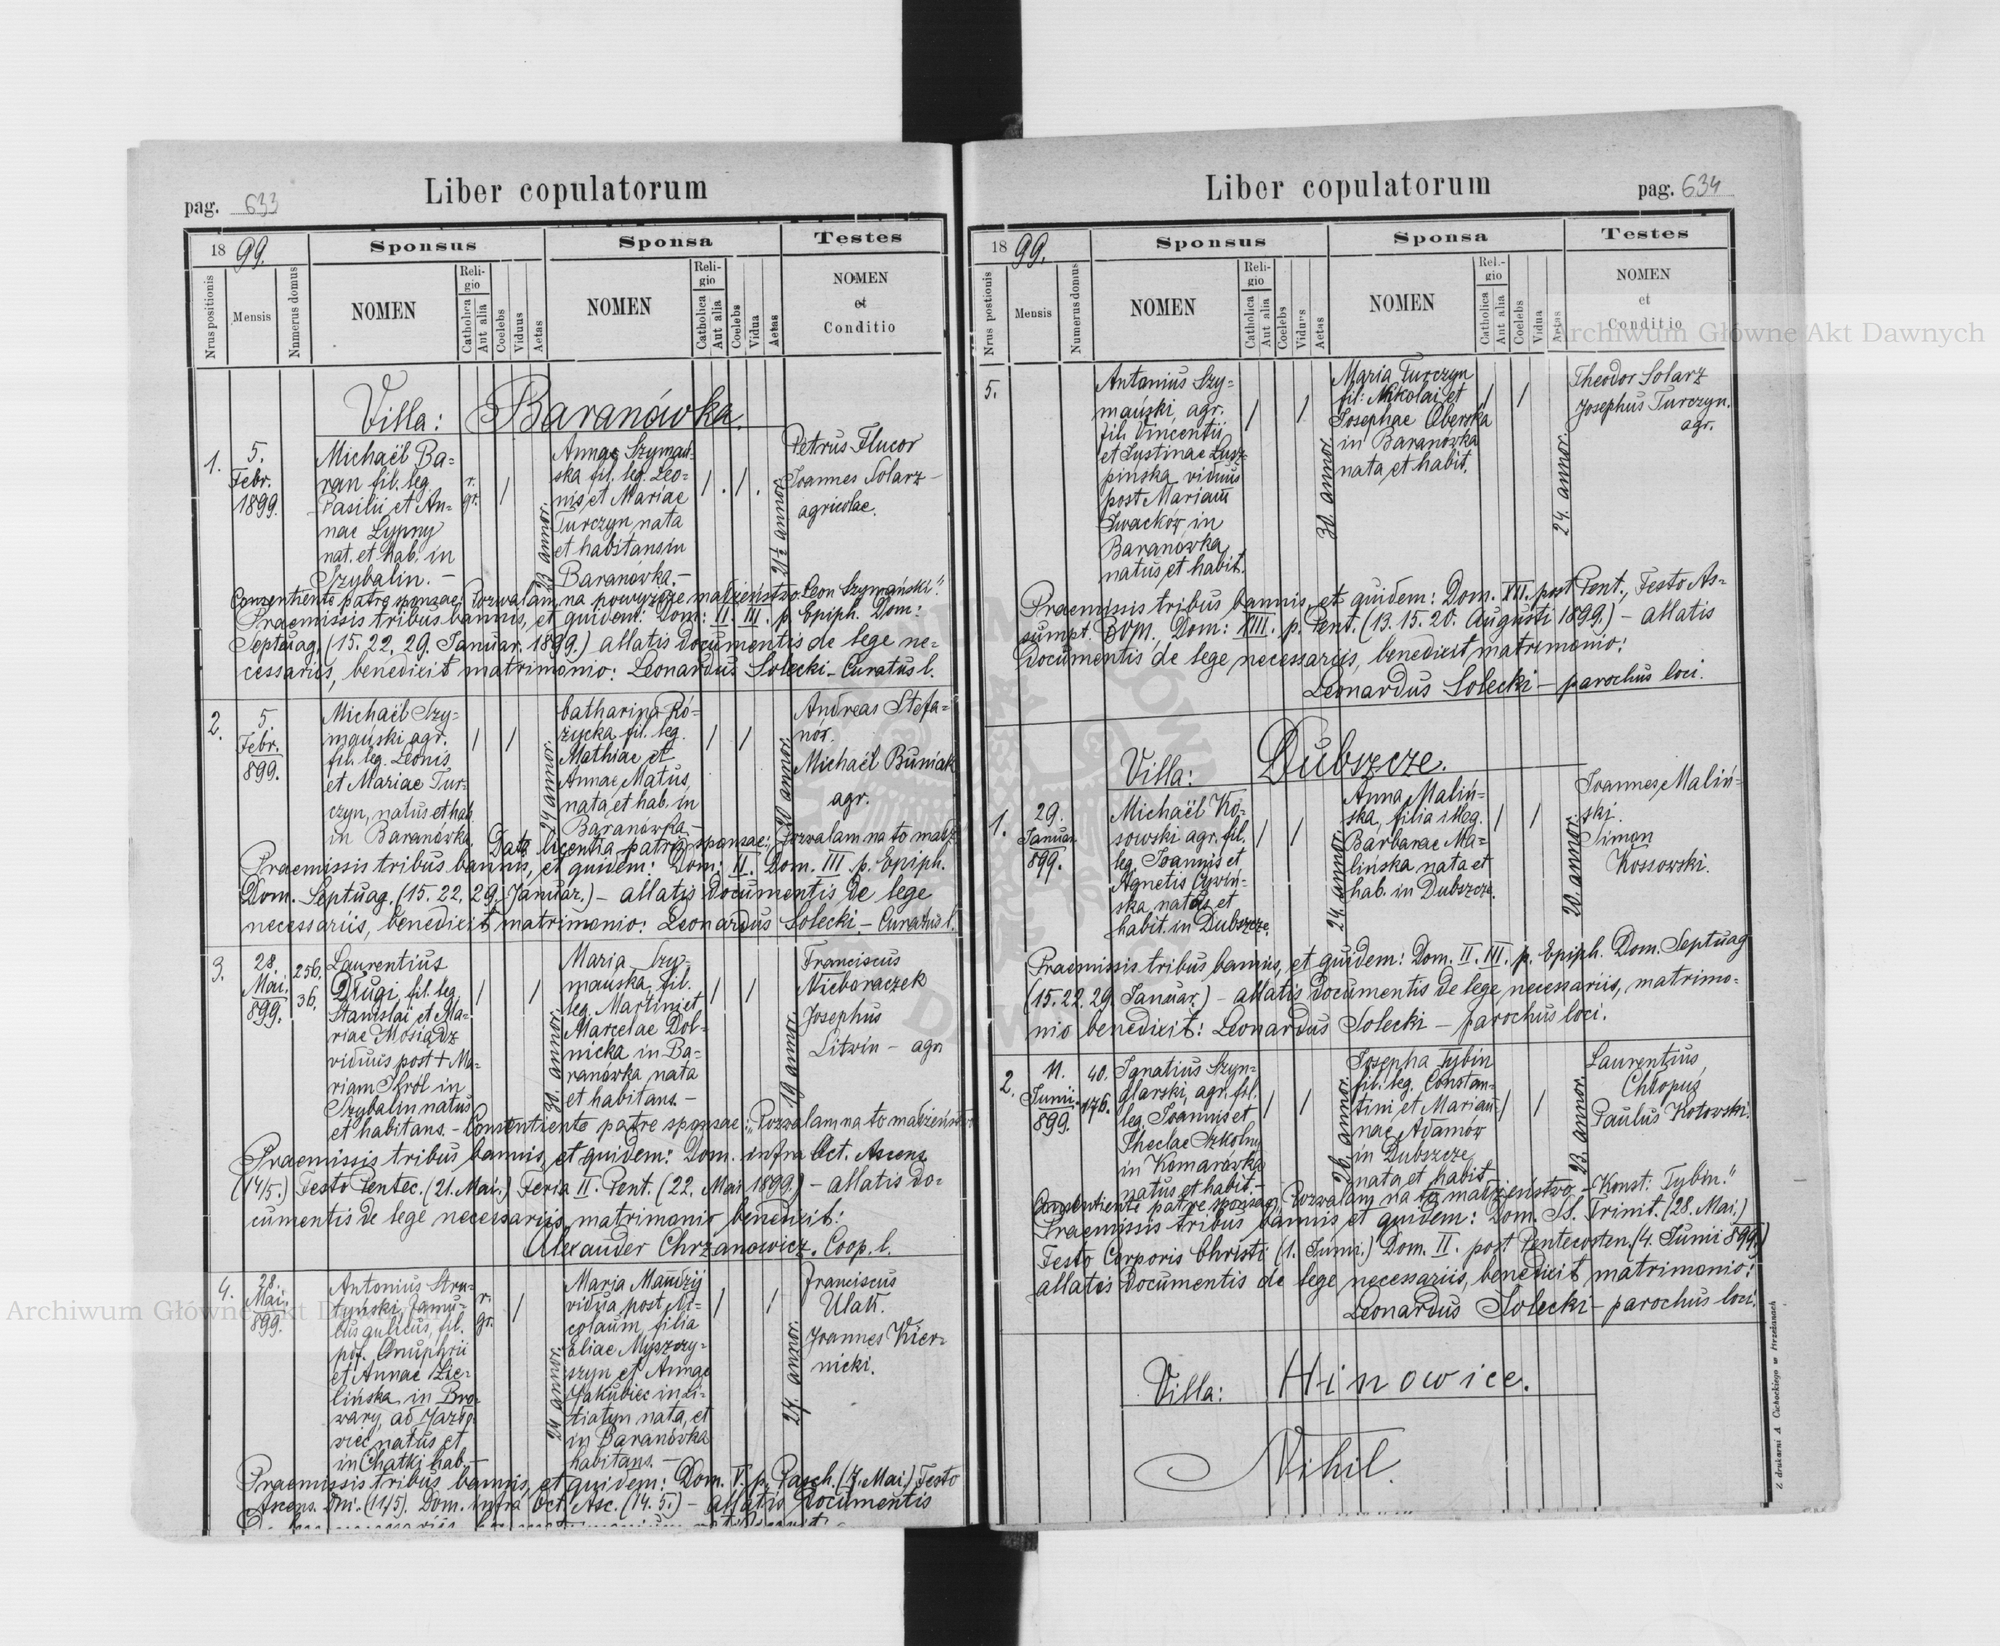 Liber copulatorum
pag. 633
1899.
Sponsus
Sponsa
Testes
Nrus positionis
Mensis
Numerus domus
NOMEN
Religio
Catholica
Aut alia
Coelebs
Viduus
Aetas
NOMEN
Religio
Catholica
Aut alia
Coelebs
Vidua
Aetas
NOMEN
et
Conditio
Villa: Baranówka.
1.
5.
Febr.
1899.
Michaël Ba-
ran fil. leg.
Basilii et An-
nae Lypny
nat. et hab. in
Szybalin. –
r.
gr.
23 annor.
Annae Szymań-
ska fil. leg. Leo-
nis et Mariae
Turczyn nata
et habitans in
Baranówka. –
21½ annor.
Petrus Flucor
Joannes Solarz –
agricolae.
Consentiente patre sponsae: "Pozwalam na powyższe małżeństwo: Leon Szymański".
Praemissis tribus bannis, et quidem: Dom: II. III. p. Epiph. Dom:
Septuag. (15. 22. 29. Januar. 1899.) allatis documentis de lege ne-
cessariis, benedixit matrimonio: Leonardus Solecki – Curatus l.
2.
5.
Febr.
899.
Michaël Szy-
mański agr.
fil. leg. Leonis
et Mariae Tur-
czyn, natus et hab.
in Baranówka.
24 annor.
Catharina Ró-
życka fil. leg.
Mathiae et
Annae Matus,
nata et hab. in
Baranówka.
20 annor.
Andreas Stefa-
nów.
Michaël Buniak
agr.
Data licentia patris sponsae: "Pozwalam na to małż.
Praemissis tribus bannis, et quidem: Dom: II. Dom. III. p. Epiph.
Dom. Septuag. (15. 22. 29. Januar.) – allatis documentis de lege
necessariis, benedixit matrimonio: Leonardus Solecki – Curatus l.
3.
28.
Mai.
899.
256.
36.
Laurentius
Długi, fil. leg.
Stanislai et Ma-
riae Mosiądz
viduus post + Ma-
riam Król in
Szybalin natus
et habitans. –
30. annor.
Maria Szy-
mańska, fil.
leg. Martini et
Marcelae Dol-
nicka in Ba-
ranówka nata
et habitans. –
19 annor.
Franciscus
Nieboraczek
Josephus
Litwin – agr.
Consentiente patre sponsae: "Pozwalam na to małżeństwo
Praemissis tribus bannis, et quidem: Dom. infra Oct. Ascens.
(14/5.) Festo Pentec. (21. Mai.) Feria II. Pent. (22. Mai 1899.) – allatis do-
cumentis de lege necessariis, matrimonio benedixit:
Alexander Chrzanowicz. Coop. l.
4.
28.
Mai.
899.
Antonius Stru-
tyński, famu-
lus aulicus, fil.
pof. Onuphrii
et Annae Zie-
lińska in Bro-
wary, ad Jazło-
wiec natus et
in Chatki hab. –
r.
gr.
24 annor.
Maria Mandzij
vidua post Ni-
colaum, filia
Eliae Myszczy-
szyn et Annae
Jakubiec in Li-
tiatyn nata, et
in Baranówka
habitans. –
27. annor.
Franciscus
Ulak.
Joannes Kier-
nicki.
Praemissis tribus bannis, et quidem: Dom. V. p. Pasch. (7. Mai.) Festo
Ascens. Dni. (11/5). Dom. infra Oct. Asc. (14. 5.) – allatis documentis
Liber copulatorum
pag. 634
1899.
Sponsus
Sponsa
Testes
Nrus positionis
Mensis
Numerus domus
NOMEN
Religio
Catholica
Aut alia
Coelebs
Viduus
Aetas
NOMEN
Religio
Catholica
Aut alia
Coelebs
Vidua
Aetas
NOMEN
et
Conditio
5.
Antonius Szy-
mański agr.
fil. Vincentii
et Justinae
viduus
post Mariam
Swaców in
Baranówka
natus et habit.
30. annor.
Maria Turczyn
fil: Nikolai et
Josephae Oberska
in Baranówka
nata et habit.
24. annor.
Theodor Solarz
Josephus Turczyn.
agr.
Praemissis tribus bannis, et quidem: Dom. XII. post Pent., Festo As-
sumpt. BVM., Dom: XIII. p. Pent. (13. 15. 20. Augusti 1899.) – allatis
documentis de lege necessariis, benedixit matrimonio:
Leonardus Solecki – parochus loci.
Villa: Dubszcze.
1.
29.
Januar.
899.
Michaël Ko-
sowski agr. fil.
leg. Joannis et
Agnetis Cywiń-
ska, natus et
habit. in Dubszcze.
24. annor.
Anna Maliń-
ska, filia illeg.
Barbarae Ma-
lińska nata et
hab. in Dubszcze.
20. annor.
Joannes Maliń-
ski.
Simon
Kossowski.
Praemissis tribus bannis, et quidem: Dom. II. III. p. Epiph. Dom. Septuag
(15. 22. 29. Januar.) – allatis documentis de lege necessariis, matrimo-
nio benedixit: Leonardus Solecki – parochus loci.
2.
11.
Junii.
899.
40.
176.
Ignatius Szyn-
glarski, agr. fil.
leg. Joannis et
Theclae Szkolny
in Komarówka
natus et habit. –
26. annor.
Josepha Tybin
fil. leg. Constan-
tini et Marian-
nae Adamów
in Dubszcze
nata et habit
23. annor.
Laurentius
Chłopuś
Paulus Kotowski.
Consentiente patre sponsae: "Pozwalam na to małżeństwo. – Konst: Tybin."
Praemissis tribus bannis et quidem: Dom. SS. Trinit. (28. Mai.)
Festo Corporis Christi (1. Junii.) Dom. II. post Pentecosten. (4. Junii 899.)
allatis documentis de lege necessariis, benedixit matrimonio:
Leonardus Solecki – parochus loci.
Villa: Hinowice.
Nihil.
Archiwum Główne Akt Dawnych
Archiwum Główne Akt Dawnych